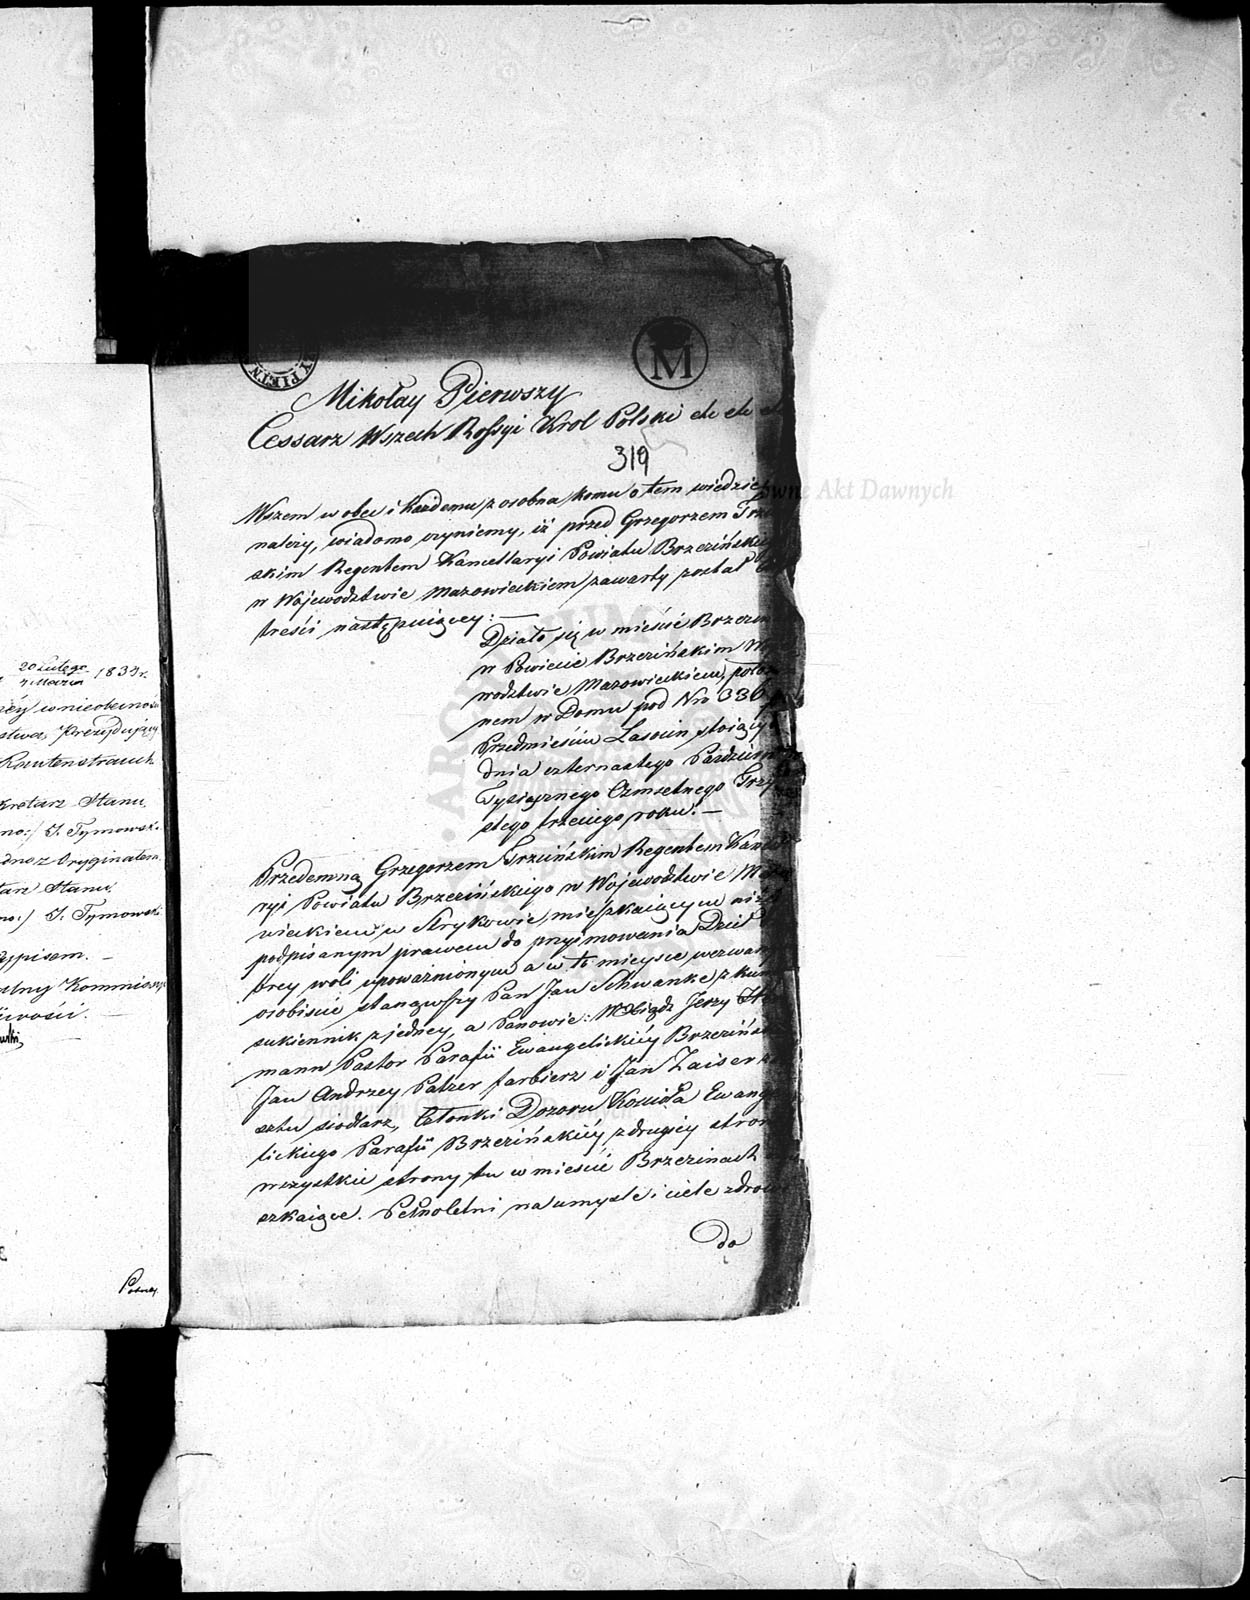 20 Lutego
4 Marca 1834 r.
w nieobecności
Prezydujący
Koutenstrauch
Sekretarz Stanu
J. Tymowski
zgodno z Oryginałem
Stanu
J. Tymowski
Mikołay Pierwszy
Cessarz Wszech Rossyi Krol Polski etc etc etc
319
Wszem w obec i Każdemu z osobna komu o tem wiedzieć
należy, wiadomo czyniemy, iż przed Grzegorzem Trzciń
skim Regentem Kancellaryi Powiatu Brzezińskiego
w Wojewodztwie Mazowieckiem zawarty został
treści następuiącey: —
Działo się w mieście Brzezin
w Powiecie Brzezińskim W
wodztwie Mazowieckiem, położo
nem w Domu pod Nro 336
Przedmieściu Lasocin stoiący
dnia czternastego Paździer
Tysiącznego Ośmsetnego Trzy
stego trzeciego roku. —
Przedemną Grzegorzem Trzcińskim Regentem Kancella
ryi Powiatu Brzezińskiego w Wojewodztwie Mazo
wieckiem, w Strykowie mieszkaiącym niżey
podpisanym prawem do przyimowania Dzieł
brey woli upoważnionym a w to mieysce wezwanym
osobiście stanąwszy Pan Jan Schwanke z kun
sukiennik z jedney, a Panowie: Xsiądz Jerzy
mann Pastor Parafii Ewangelickiéy Brzezińsk
Jan Andrzey Patzer farbierz i Jan Zaiser z
sztu siodlarz, Członki Dozoru Kościoła Ewange
lickiego Parafii Brzezińskiéy z drugiey stron
wszystkie strony tu w mieście Brzezinach
szkaiące. Pełnoletni na umyśle i ciele zdrow
do